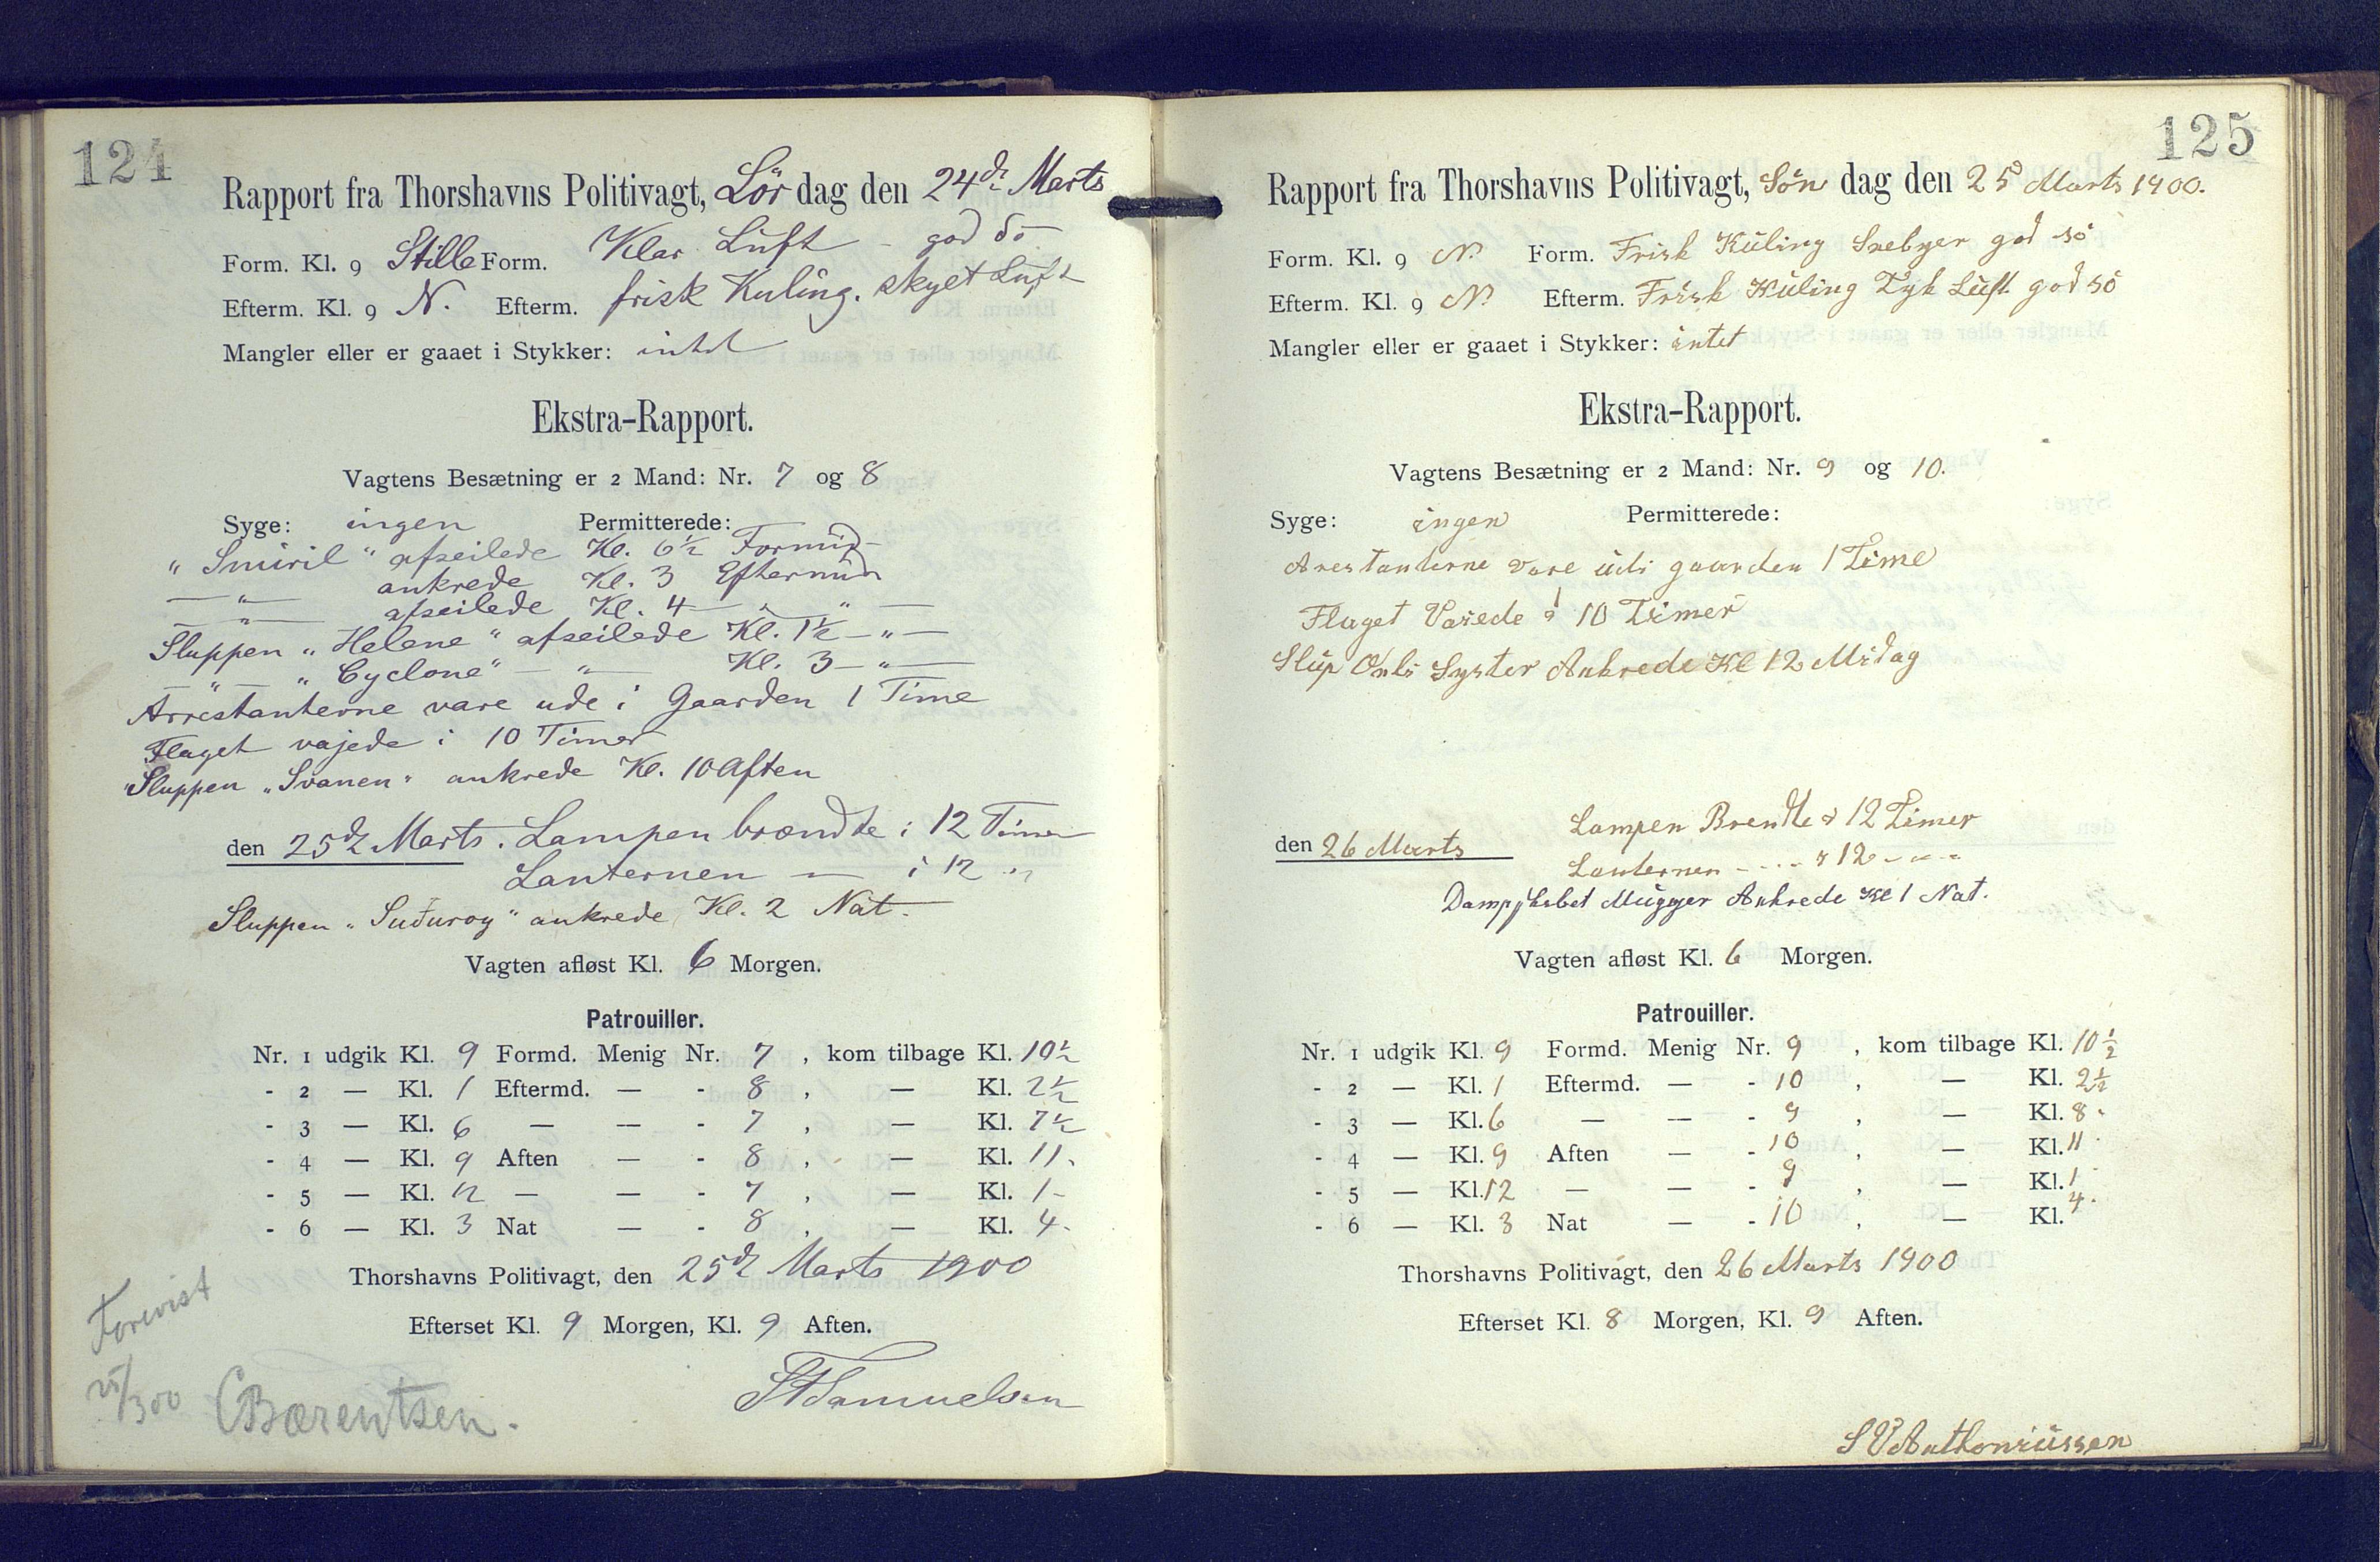 124
Rapport fra Thorshavns Politivagt, Lör dag den 24de Marts
Form. Kl. 9 Stille Form. Klar Luft - god Sö
Efterm. Kl. 9 N. Efterm. frisk Kuling. skyet Luft
Mangler eller er gaaet i Stykker: intet
Ekstra-Rapport.
Vagtens Besætning er 2 Mand: Nr. 7 og 8
Syge: ingen Permitterede:
"Smiril" afseilede Kl. 6½ Formid
—"— ankrede Kl. 3 Eftermid
—"— afseilede Kl. 4 — " —
Sluppen "Helene" afseilede Kl. 1½ — " —
— " — "Cyclone" — " — Kl. 3 — " —
Arrestanterne vare ude i Gaarden 1 Time
Flaget vajede i 10 Timer
Sluppen "Svanen" ankrede Kl. 10 Aften
den 25de Marts. Lampen brændte i 12 Timer
Lanternen — i 12 "
Sluppen "Suðuroy" ankrede Kl. 2 Nat.
Vagten afløst Kl. 6 Morgen.
Patrouiller.
Nr. 1 udgik Kl. 9 Formd. Menig Nr. 7, kom tilbage Kl. 10½
- 2 — Kl. 1 Eftermd. — - 8, — Kl. 2½
- 3 — Kl. 6 — — - 7, — Kl. 7½
- 4 — Kl. 9 Aften — - 8, — Kl. 11.
- 5 — Kl. 12 — — - 7, — Kl. 1-
- 6 — Kl. 3 Nat — - 8, — Kl. 4-
Thorshavns Politivagt, den 25de Marts 1900
Efterset Kl. 9 Morgen, Kl. 9 Aften.
Samuelsen
Forevist
25/3 00 CBærentsen.
125
Rapport fra Thorshavns Politivagt, Sön dag den 25 Marts 1900.
Form. Kl. 9 N. Form. Frisk Küling Snebyer god sö
Efterm. Kl. 9 N. Efterm. Frisk Küling Tyk Lüft god sö
Mangler eller er gaaet i Stykker: intet
Ekstra-Rapport.
Vagtens Besætning er 2 Mand: Nr. 9 og 10.
Syge: ingen Permitterede:
Arestanterne vare üdi gaarden 1 Time
Flaget Vaiede i 10 Timer
Slüp Onli Syster Ankrede Kl 12 Midag
den 26 Marts Lampen Brendte i 12 Timer
Lanternen - - - - i 12 - " - -
Dampskibet Mügger Ankrede Kl 1 Nat.
Vagten afløst Kl. 6 Morgen.
Patrouiller.
Nr. 1 udgik Kl. 9 Formd. Menig Nr. 9, kom tilbage Kl. 10½
- 2 — Kl. 1 Eftermd. — - 10, — Kl. 2½
- 3 — Kl. 6 — — - 9, — Kl. 8.
- 4 — Kl. 9 Aften — - 10, — Kl. 11.
- 5 — Kl. 12 — — - 9, — Kl. 1
- 6 — Kl. 3 Nat — - 10, — Kl. 4.
Thorshavns Politivagt, den 26 Marts 1900
Efterset Kl. 8 Morgen, Kl. 9 Aften.
S V Anthoniüssen